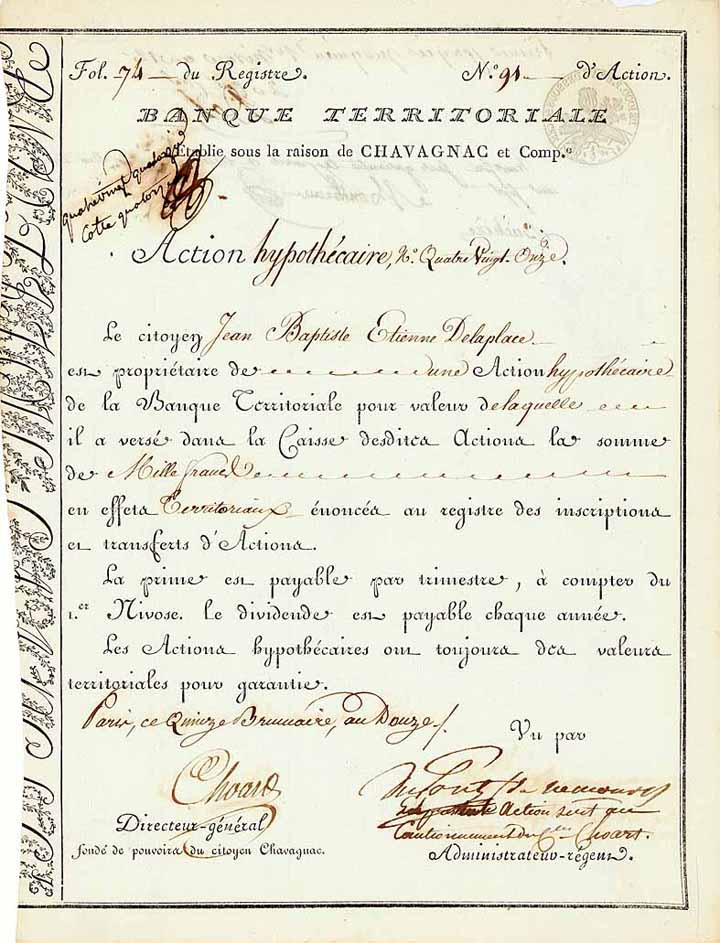 Fol. 74 du Registre. N.º 91 d'Action.
BANQUE TERRITORIALE
Établie sous la raison de CHAVAGNAC et Comp.e
quatrevingt quatorze
Cotte quatorze
Action hypothécaire, N.º Quatre Vingt-Onze.
Le citoyen Jean Baptiste Etienne Delaplace
est propriétaire de une Action hypothécaire
de la Banque Territoriale pour valeur de laquelle
il a versé dans la Caisse desdites Actions la somme
de Mille francs
en effets Territoriaux énoncés au registre des inscriptions
et transferts d'Actions.
La prime est payable par trimestre, à compter du
1.er Nivose. Le dividende est payable chaque année.
Les Actions hypothécaires ont toujours des valeurs
territoriales pour garantie.
Paris, ce Quinze Brumaire, an Douze.
Vu par
Choart
Du Pont (de nemours)
Directeur-général
Action sert au
fondé de pouvoirs du citoyen Chavagnac.
Cautionnement du Cen Choart.
Administrateur-régent.